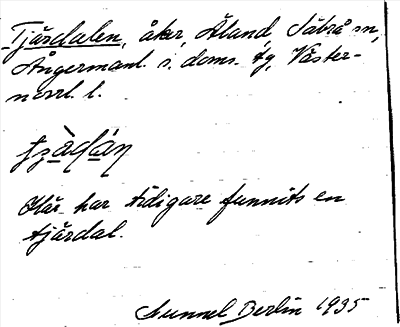 Tjärdalen, åker, Åland, Säbrå sn,
Ångermanl. s. doms. tg, Väster-
norrl. l.
Här har tidigare funnits en
tjärdal.
Gunnel Berlin 1935